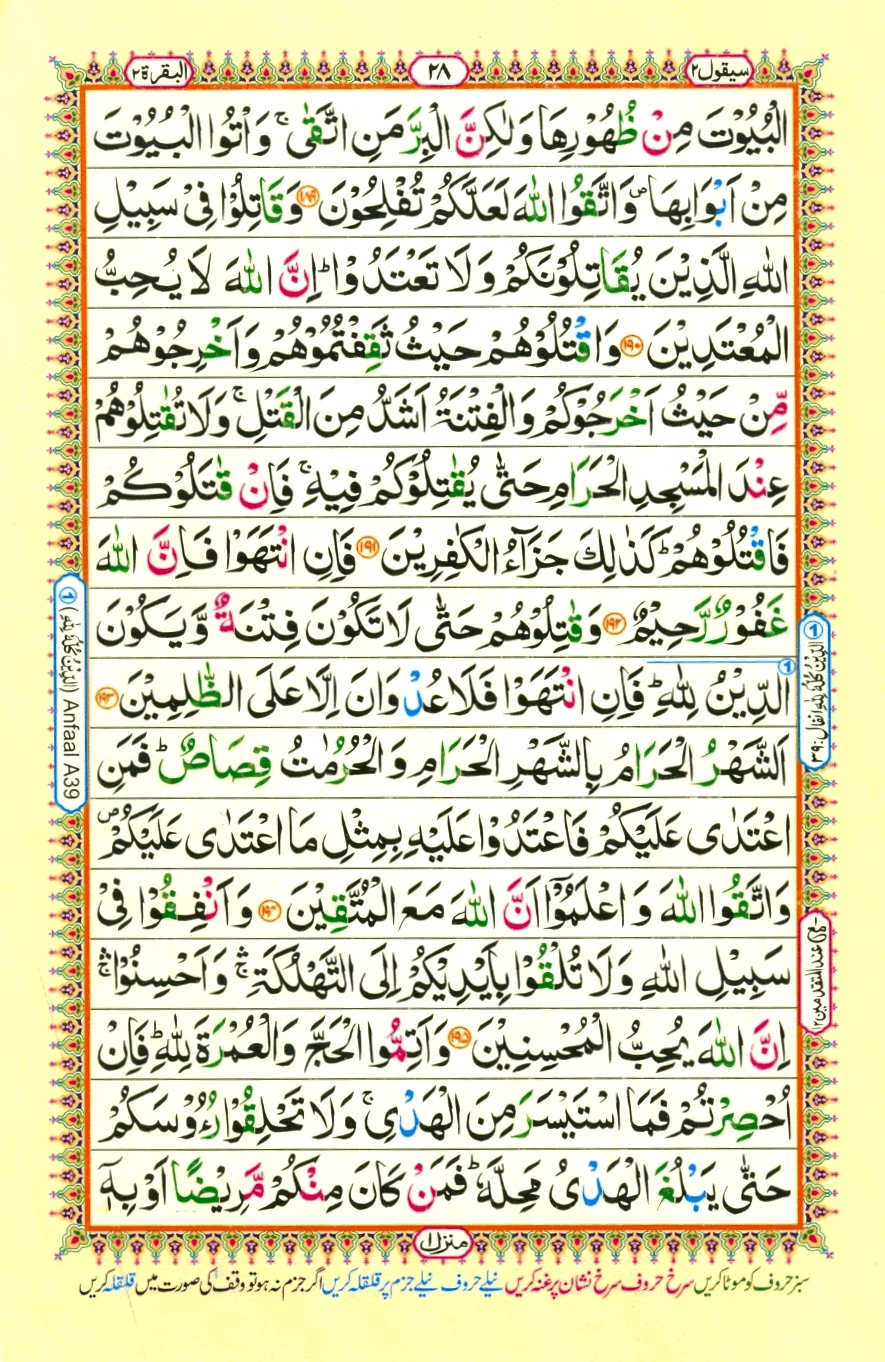 سيقول٢
٢٨
البقرة٢
الْبُيُوْتَ مِنْ ظُهُوْرِهَا وَلٰكِنَّ الْبِرَّ مَنِ اتَّقٰى ۚ وَاْتُوا الْبُيُوْتَ
مِنْ اَبْوَابِهَا ۖ وَاتَّقُوا اللّٰهَ لَعَلَّكُمْ تُفْلِحُوْنَ ﴿١٨٩﴾ وَقَاتِلُوْا فِيْ سَبِيْلِ
اللّٰهِ الَّذِيْنَ يُقَاتِلُوْنَكُمْ وَلَا تَعْتَدُوْا ؕ اِنَّ اللّٰهَ لَا يُحِبُّ
الْمُعْتَدِيْنَ ﴿١٩٠﴾ وَاقْتُلُوْهُمْ حَيْثُ ثَقِفْتُمُوْهُمْ وَاَخْرِجُوْهُمْ
مِّنْ حَيْثُ اَخْرَجُوْكُمْ وَالْفِتْنَةُ اَشَدُّ مِنَ الْقَتْلِ ۚ وَلَا تُقٰتِلُوْهُمْ
عِنْدَ الْمَسْجِدِ الْحَرَامِ حَتّٰى يُقٰتِلُوْكُمْ فِيْهِ ۚ فَاِنْ قٰتَلُوْكُمْ
فَاقْتُلُوْهُمْ ؕ كَذٰلِكَ جَزَآءُ الْكٰفِرِيْنَ ﴿١٩١﴾ فَاِنِ انْتَهَوْا فَاِنَّ اللّٰهَ
غَفُوْرٌ رَّحِيْمٌ ﴿١٩٢﴾ وَقٰتِلُوْهُمْ حَتّٰى لَا تَكُوْنَ فِتْنَةٌ وَّيَكُوْنَ
الدِّيْنُ لِلّٰهِ ؕ فَاِنِ انْتَهَوْا فَلَا عُدْوَانَ اِلَّا عَلَى الظّٰلِمِيْنَ ﴿١٩٣﴾
اَلشَّهْرُ الْحَرَامُ بِالشَّهْرِ الْحَرَامِ وَالْحُرُمٰتُ قِصَاصٌ ؕ فَمَنِ
اعْتَدٰى عَلَيْكُمْ فَاعْتَدُوْا عَلَيْهِ بِمِثْلِ مَا اعْتَدٰى عَلَيْكُمْ ۖ
وَاتَّقُوا اللّٰهَ وَاعْلَمُوْٓا اَنَّ اللّٰهَ مَعَ الْمُتَّقِيْنَ ﴿١٩٤﴾ وَاَنْفِقُوْا فِيْ
سَبِيْلِ اللّٰهِ وَلَا تُلْقُوْا بِاَيْدِيْكُمْ اِلَى التَّهْلُكَةِ ۛۚ وَاَحْسِنُوْا ۛۚ
اِنَّ اللّٰهَ يُحِبُّ الْمُحْسِنِيْنَ ﴿١٩٥﴾ وَاَتِمُّوا الْحَجَّ وَالْعُمْرَةَ لِلّٰهِ ؕ فَاِنْ
اُحْصِرْتُمْ فَمَا اسْتَيْسَرَ مِنَ الْهَدْيِ ۚ وَلَا تَحْلِقُوْا رُءُوْسَكُمْ
حَتّٰى يَبْلُغَ الْهَدْيُ مَحِلَّهٗ ؕ فَمَنْ كَانَ مِنْكُمْ مَّرِيْضًا اَوْ بِهٖٓ
١ الدِّيْنُ كُلُّهٗ لِلّٰهِ انفال:٣٩
مع عند المتقدمين ١٢
١ (الدِّيْنُ كُلُّهٗ لِلّٰهِ) Anfaal A39
منزل ١
سبز حروف کو موٹا کریں سرخ حروف سرخ نشان پر غنہ کریں نیلے حروف نیلے جزم پر قلقلہ کریں اگر جزم نہ ہو تو وقف کی صورت میں قلقلہ کریں